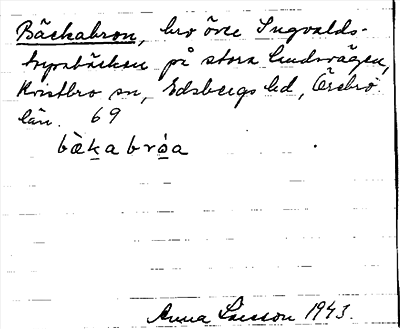 Bäckabron, bro över Ingvalds-
torpabäcken på stora landsvägen,
Kvistbro sn, Edsbergs hd, Örebro
län. 69
bàka bróa
Anna Larsson 1943.